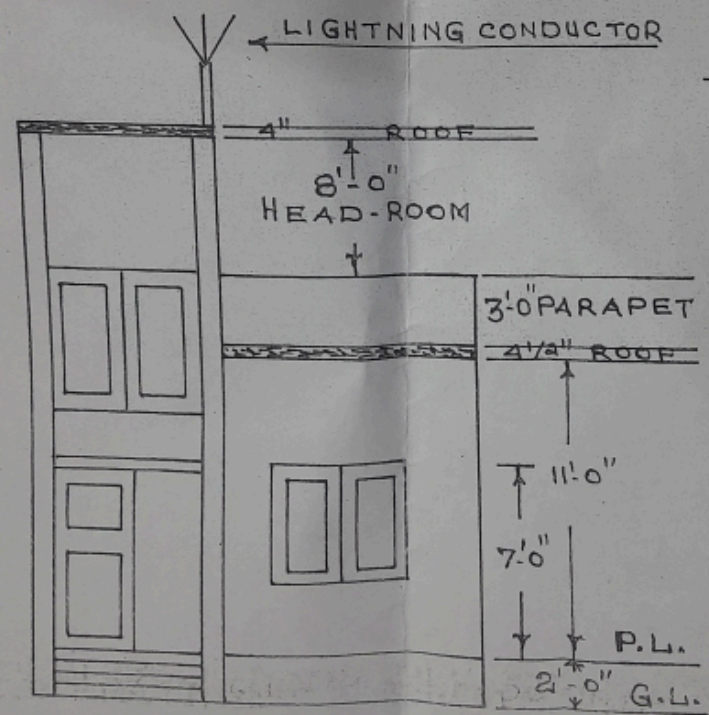 LIGHTNING CONDUCTOR
4" ROOF
8'-0"
HEAD-ROOM
3'-0" PARAPET
4 1/2" ROOF
11'-0"
7'-0"
P.L.
2'-0"
G.L.